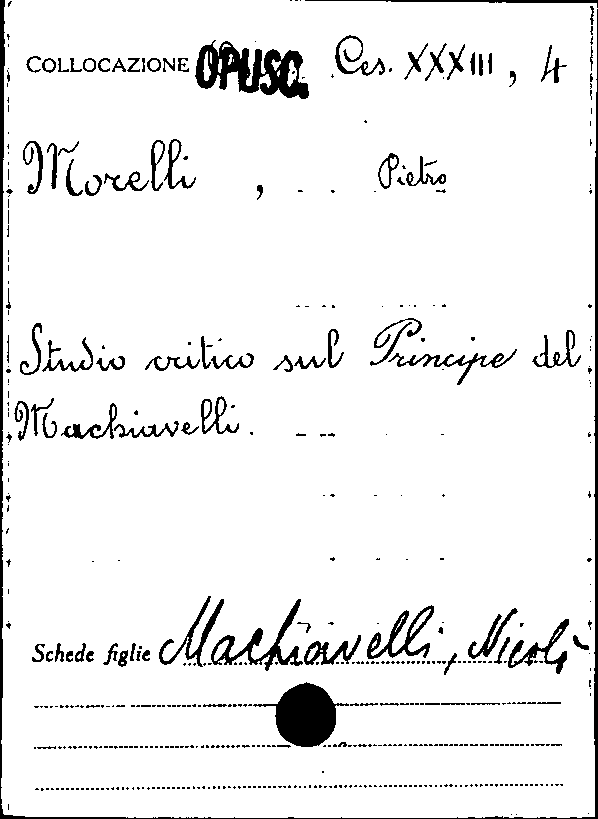 COLLOCAZIONE OPUSC. Ces. XXXIII, 4
Morelli, Pietro
Studio critico sul Principe del
Machiavelli.
Schede figlie Machiavelli, Nicolò